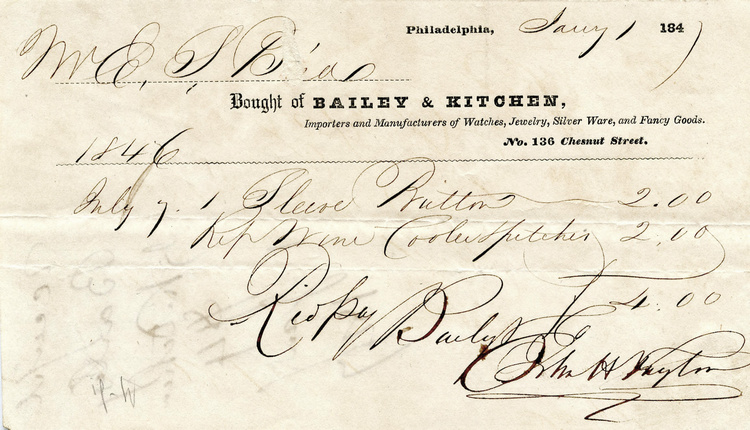 Philadelphia, Jany 1 1847
Mr E. S.
Bought of BAILEY & KITCHEN,
Importers and Manufacturers of Watches, Jewelry, Silver Ware, and Fancy Goods.
No. 136 Chesnut Street.
1846
July 7. 1 Sleeve Button 2.00
Rep Wine Cooler & pitcher 2.00
$4.00
Recd Pay Bailey & Co
John H